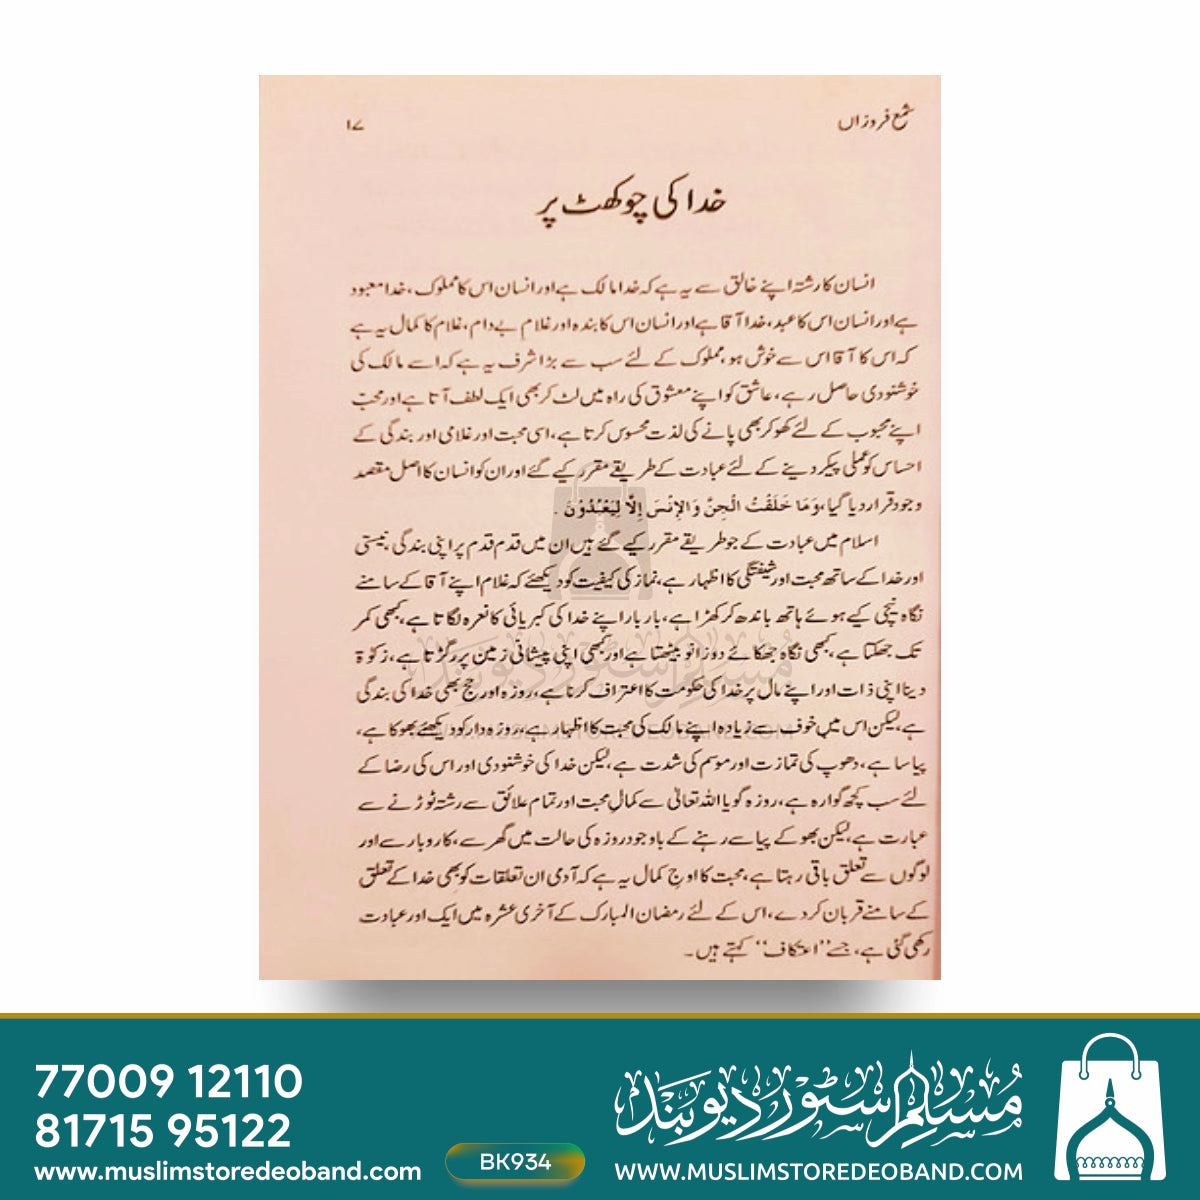 شمع فروزاں
۱۷
خدا کی چوکھٹ پر
انسان کا رشتہ اپنے خالق سے یہ ہے کہ خدا مالک ہے اور انسان اس کا مملوک، خدا معبود
ہے اور انسان اس کا عبد، خدا آقا ہے اور انسان اس کا بندہ اور غلام بے دام، غلام کا کمال یہ ہے
کہ اس کا آقا اس سے خوش ہو، مملوک کے لئے سب سے بڑا شرف یہ ہے کہ اسے مالک کی
خوشنودی حاصل رہے، عاشق کو اپنے معشوق کی راہ میں لٹ کر بھی ایک لطف آتا ہے اور محب
اپنے محبوب کے لئے کھو کر بھی پانے کی لذت محسوس کرتا ہے، اسی محبت اور غلامی اور بندگی کے
احساس کو عملی پیکر دینے کے لئے عبادت کے طریقے مقرر کیے گئے اور ان کو انسان کا اصل مقصد
وجود قرار دیا گیا، وَمَا خَلَقْتُ الْجِنَّ وَالإِنْسَ إِلَّا لِيَعْبُدُوْنَ .
اسلام میں عبادت کے جو طریقے مقرر کیے گئے ہیں ان میں قدم قدم پر اپنی بندگی، نیستی
اور خدا کے ساتھ محبت اور شیفتگی کا اظہار ہے، نماز کی کیفیت کو دیکھئے کہ غلام اپنے آقا کے سامنے
نگاہ نیچی کیے ہوئے ہاتھ باندھ کر کھڑا ہے، بار بار اپنے خدا کی کبریائی کا نعرہ لگاتا ہے، کبھی کمر
تک جھکتا ہے، کبھی نگاہ جھکائے دوزانو بیٹھتا ہے اور کبھی اپنی پیشانی زمین پر رگڑتا ہے، زکوٰۃ
دینا اپنی ذات اور اپنے مال پر خدا کی حکومت کا اعتراف کرنا ہے، روزہ اور حج بھی خدا کی بندگی
ہے، لیکن اس میں خوف سے زیادہ اپنے مالک کی محبت کا اظہار ہے، روزہ دار کو دیکھئے بھوکا ہے،
پیاسا ہے، دھوپ کی تمازت اور موسم کی شدت ہے، لیکن خدا کی خوشنودی اور اس کی رضا کے
لئے سب کچھ گوارہ ہے، روزہ گویا اللہ تعالیٰ سے کمالِ محبت اور تمام علائق سے رشتہ توڑنے سے
عبارت ہے، لیکن بھوکے پیاسے رہنے کے باوجود روزہ کی حالت میں گھر سے، کاروبار سے اور
لوگوں سے تعلق باقی رہتا ہے، محبت کا اوج کمال یہ ہے کہ آدمی ان تعلقات کو بھی خدا کے تعلق
کے سامنے قربان کر دے، اس کے لئے رمضان المبارک کے آخری عشرہ میں ایک اور عبادت
رکھی گئی ہے، جسے ’’اعتکاف‘‘ کہتے ہیں۔
مُسلم سٹور دیوبند
WWW.MUSLIMSTOREDEOBAND.COM
77009 12110
81715 95122
www.muslimstoredeoband.com
BK934
مُسلم سٹور دیوبند
WWW.MUSLIMSTOREDEOBAND.COM